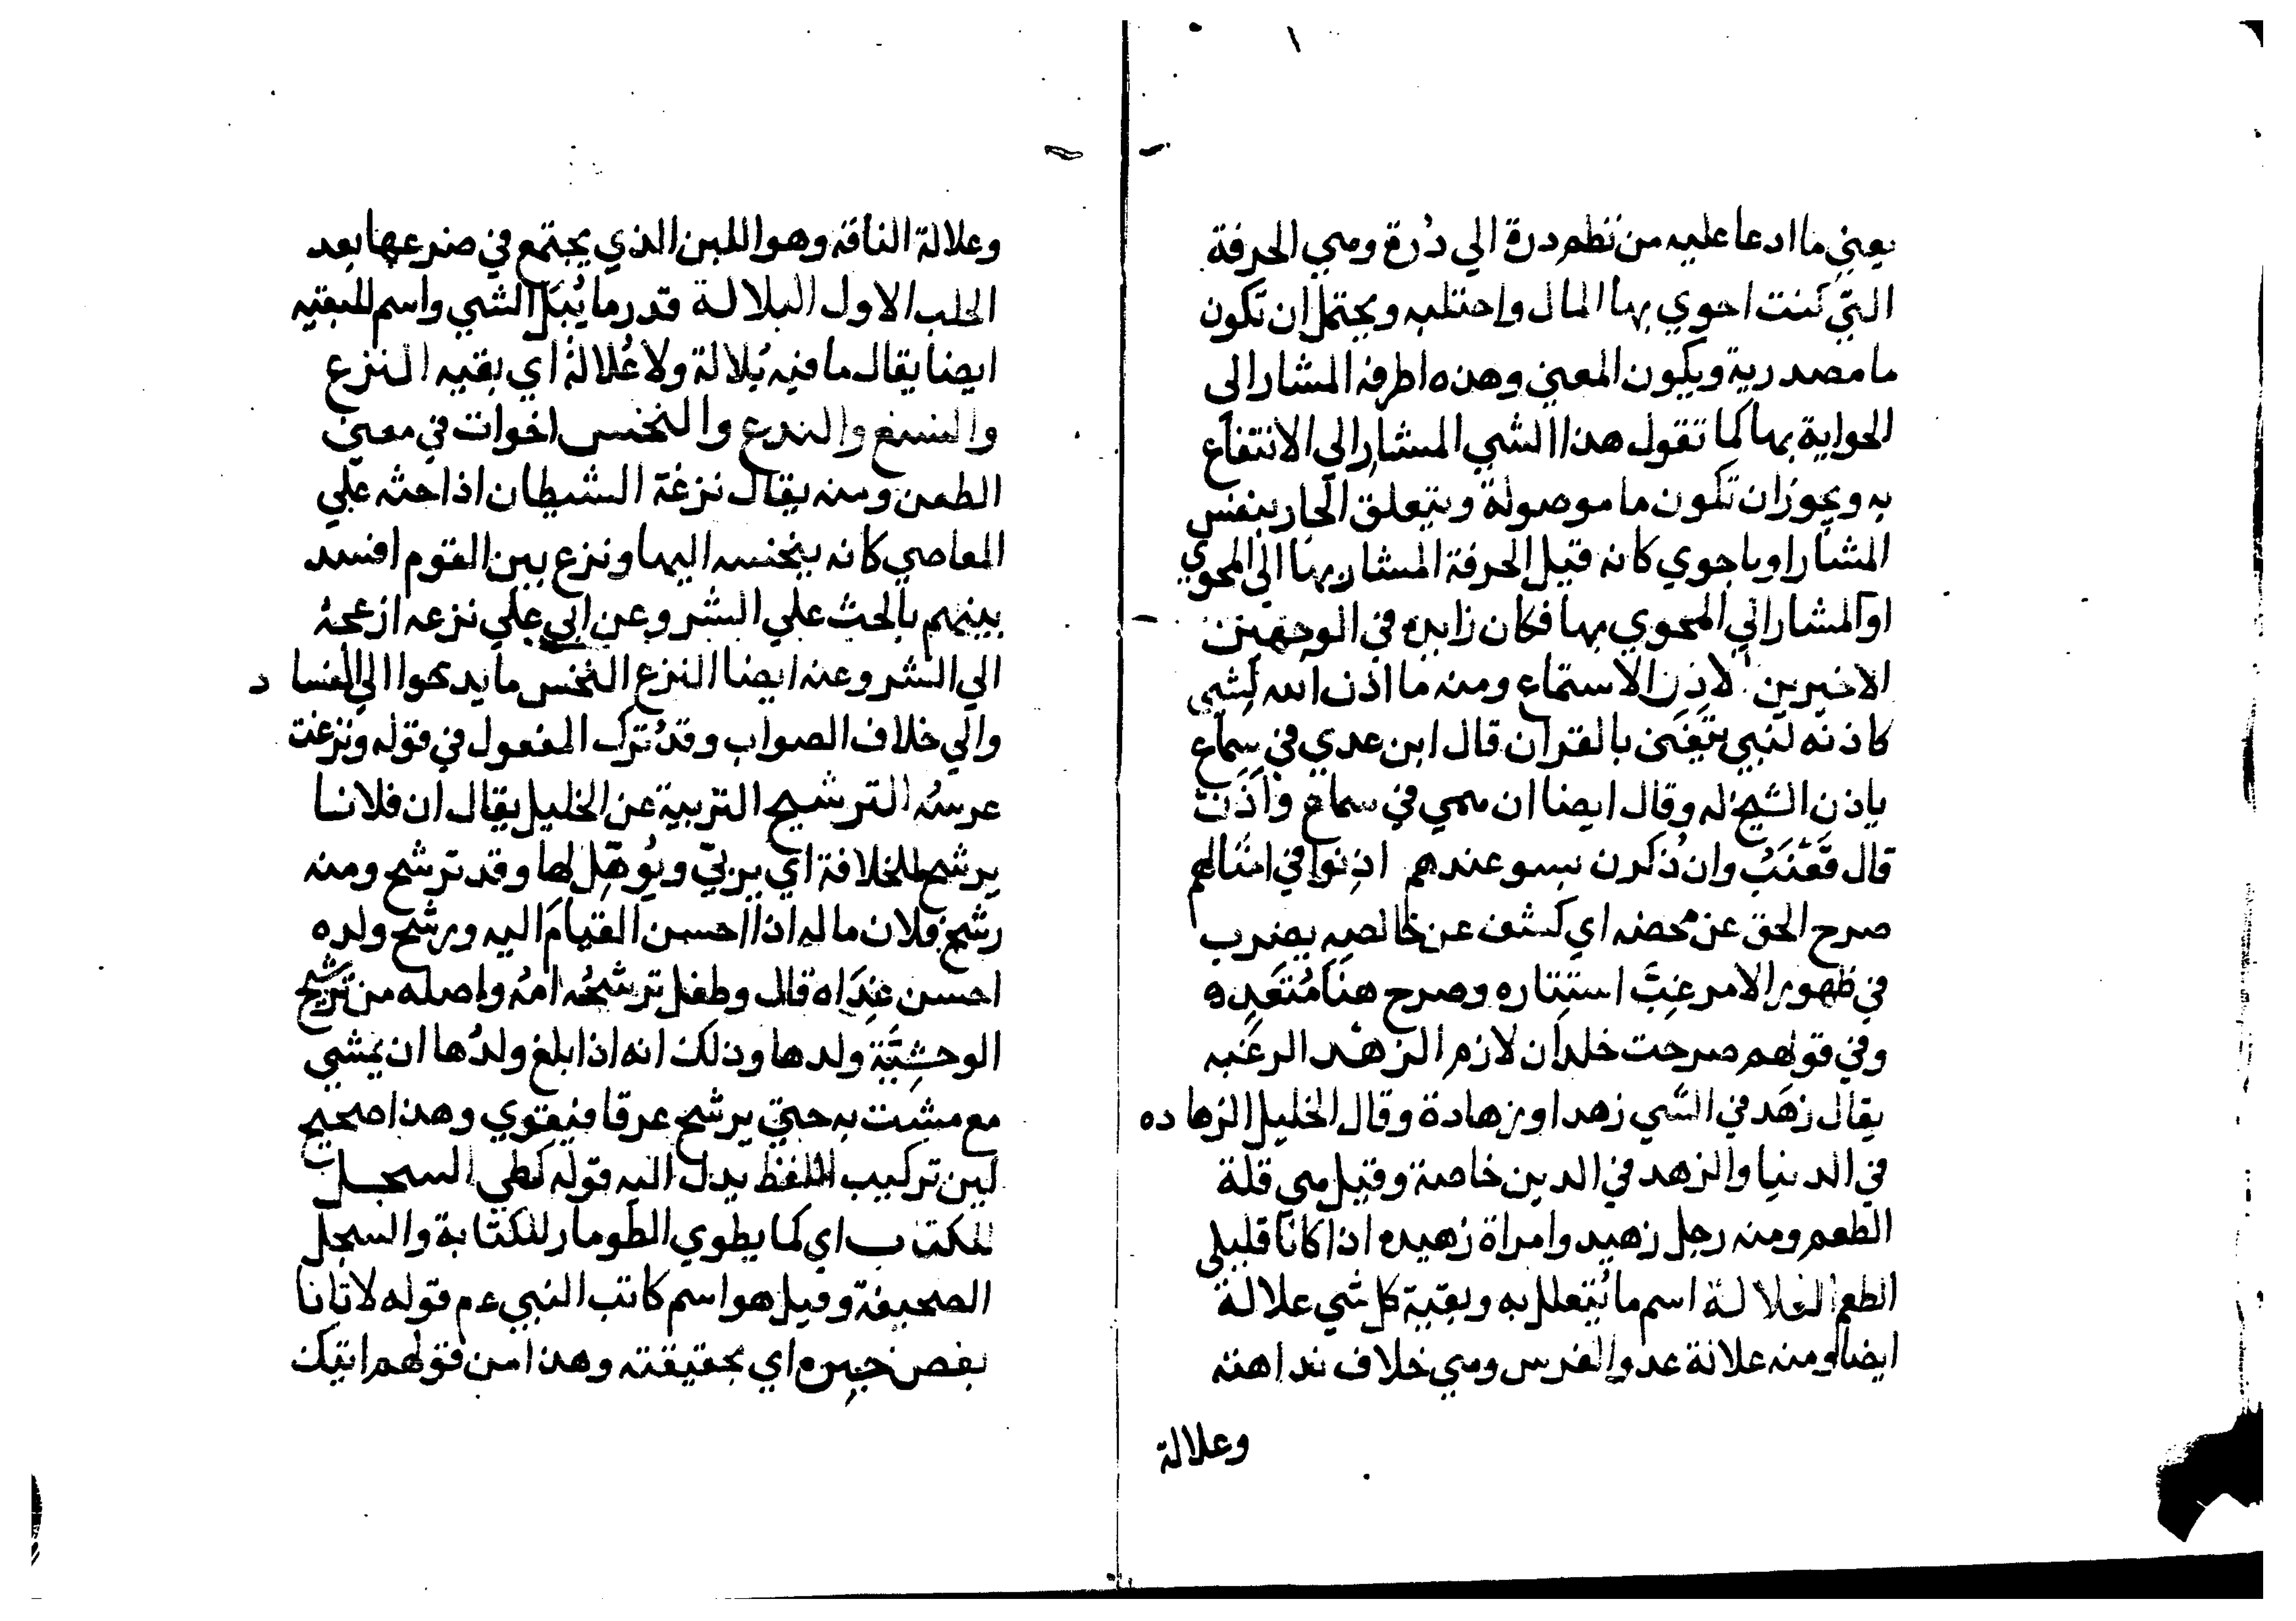 يعني ما ادعا عليه من نظم درة الي دُرة وهي الحرفة
التي كنت احوي بها المال واحتلبه ويحتمل ان تكون
ما مصدرية ويكون المعني وهذه اطرفة المشار الى
الحواية بها كما تقول هذا الشي المشار الي الانتفاع
به ويجوز ان تكون ما موصولة ويتعلق الجار بنفس
المشار او باحوي كانه قيل الحرفة المشار بها الي المحوي
او المشار الي المحوي بها فكان زايده في الوجهين
الاخيرين الاذن الاستماع ومنه ما اذن الله لشي
كاذنه لنبي يتغنى بالقران قال ابن عدي في سماع
ياذن الشيخ له وقال ايضا ان همي في سماع واَذَن
قال قَعْنَبُ وان ذُكرن بسو عندهم اذنوا في امثالهم
صرح الحق عن محضه اي كشف عن خالصه يضرب
في ظهور الامر غِبَّ استتاره وصرح هنا مُتَعَدِه
وفي قولهم صرحت خلدان لازم الزهد الرغبه
يقال زهَد في الشي زهدا وزهادة وقال الخليل الزهاده
في الدنيا والزهد في الدين خاصة وقيل هي قلة
الطعم ومنه رجل زهيد وامراة زهيده اذا كانا قليلي
الطعم العلالة اسم ما يُتعلل به وبقية كل شي علالة
ايضا ومنه علالة عدو الفرس وهي خلاف بداهته
وعلالة
وعلالة الناقه وهو اللبن الذي يجتمع في ضرعها بعد
الحلب الاول البلالة قدر ما يُبَل الشي واسم للبقيه
ايضا يقال ما فيه بُلالة ولا عُلالة اي بقيه النزغ
والنسغ والندغ والنخس اخوات في معني
الطعن ومنه يقال نزغة الشيطان اذا حثه علي
المعاصي كانه ينخسه اليها ونزغ بين القوم افسد
بينهم بالحث علي الشر وعن ابي علي نزغه ازعجهُ
الي الشر وعنه ايضا النزع النخس ما يدعوا الي الفساد
والي خلاف الصواب وقد تُرك المفعول في قوله ونزغت
عرسُه الترشيح التربية عن الخليل يقال ان فلانا
يرشح للخلافة اي يربي ويُوهِّل لها وقد ترشح ومنه
رشح فلان ماله اذا احسن القيامَ اليه ورشح ولده
احسن غِذَاه قال وطفل ترشحُه امهُ واصله من ترشيح
الوحشيَّة ولدها وذلك انه اذا بلغ ولدُها ان يمشي
مع مشت به حتي يرشح عرقا فيقوي وهذا صحيح
لين تركيب اللفظ يدل اليه قوله كطي السجل
للكتاب اي كما يطوي الطومار للكتابة والسجل
الصحيفة وقيل هو اسم كاتب النبي عم قوله لاتانا
بفص خبره اي بحقيقته وهذا من قولهم اتيك